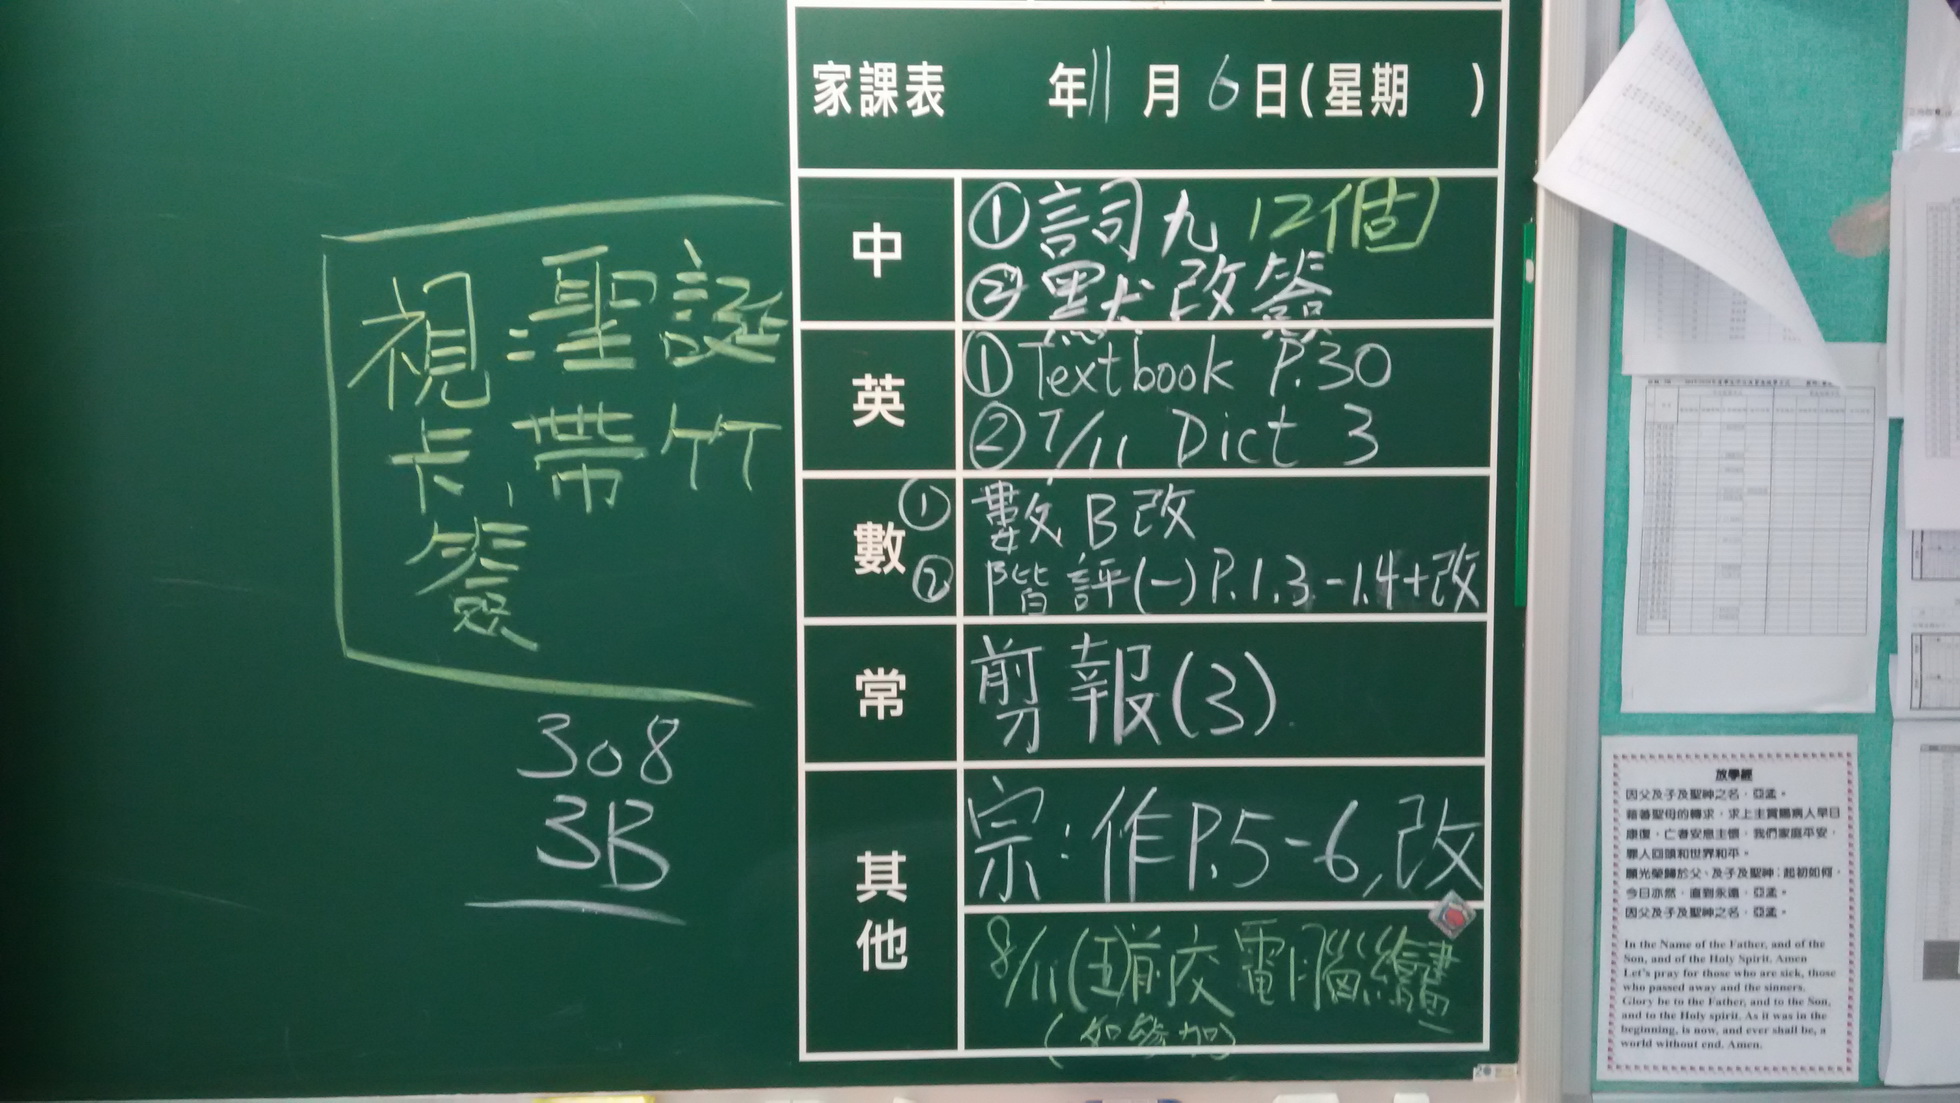 視:聖誕
卡,帶竹
簽
308
3B
家課表 年11月6日(星期 )
中
①詞九 12個
②默改簽
英
①Textbook P.30
②7/11 Dict 3
數
①數B改
②階評(一)P.1.3-1.4+改
常
剪報(3)
其他
宗:作P.5-6,改
8/11(五)前交電腦繪畫
(如參加)
放學經
因父及子及聖神之名,亞孟。
藉著聖母的轉求,求上主賞賜病人早日
康復,亡者安息主懷,我們家庭平安,
罪人回頭和世界和平。
願光榮歸於父、及子及聖神;起初如何,
今日亦然,直到永遠,亞孟。
因父及子及聖神之名,亞孟。
In the Name of the Father, and of the
Son, and of the Holy Spirit. Amen
Let's pray for those who are sick, those
who passed away and the sinners.
Glory be to the Father, and to the Son,
and to the Holy spirit. As it was in the
beginning, is now, and ever shall be, a
world without end. Amen.